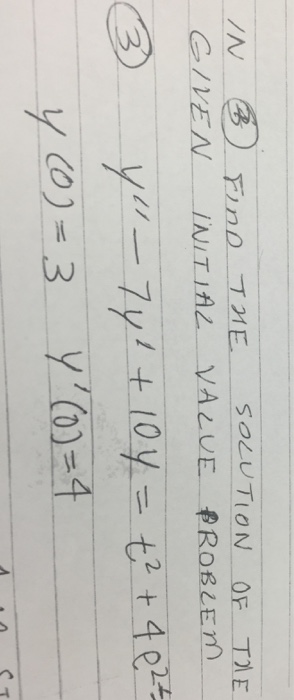 IN ③ FIND THE SOLUTION OF THE
GIVEN INITIAL VALUE PROBLEM
③ y'' - 7y' + 10y = t² + 4e²ᵗ
y(0) = 3 y'(0) = 4